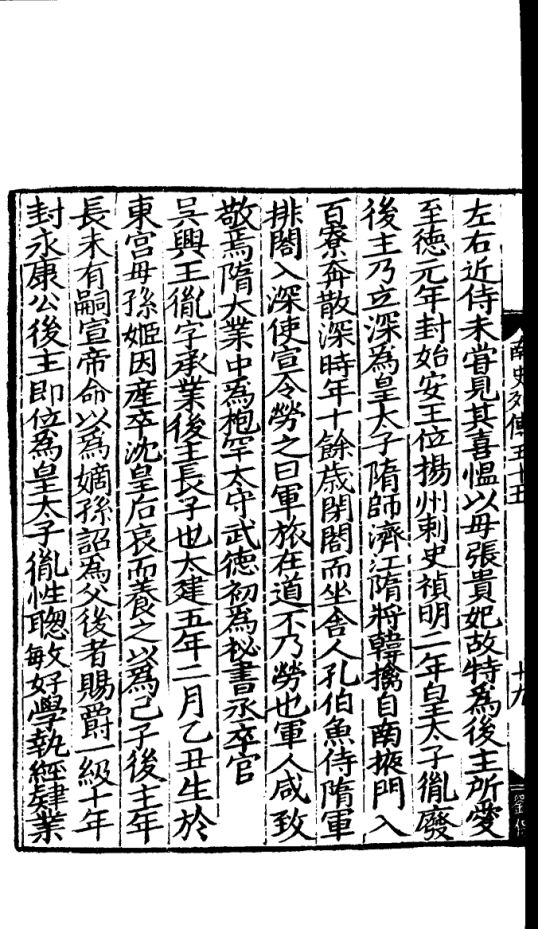 左右近侍未甞見其喜愠以母張貴妃故特為後主所愛
至徳元年封始安王位揚州刺史禎明二年皇太子胤廢
後主乃立深為皇太子隋師濟江隋將韓擒自南掖門入
百寮奔散深時年十餘歳閉閤而坐舎人孔伯魚侍隋軍
排閤入深使宣令勞之曰軍旅在道不乃勞也軍人咸致
敬焉隋大業中為枹罕太守武徳初為秘書丞卒官
吳興王胤字承業後主長子也太建五年二月乙丑生於
東宫母孫姬因産卒沈皇后哀而養之以為己子後主年
長未有嗣宣帝命以為嫡孫詔為父後者賜爵一級十年
封永康公後主即位為皇太子胤性聦敏好學執經肄業
南史列傳五十五
十九